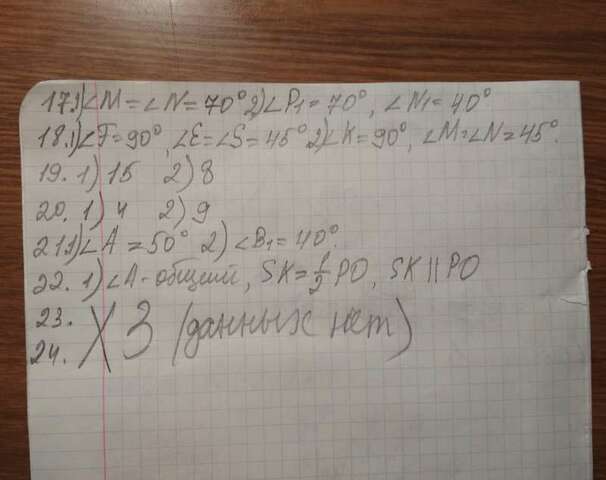 17.1) ∠M = ∠N = 70° 2) ∠P₁ = 70°, ∠N₁ = 40°
18.1) ∠F = 90°, ∠E = ∠S = 45° 2) ∠K = 90°, ∠M = ∠N = 45°.
19. 1) 15 2) 8
20. 1) 4 2) 9
21.1) ∠A = 50° 2) ∠B₁ = 40°.
22. 1) ∠A - общий, SK = 1/2 PO, SK || PO
23.
24. ХЗ (данных нет)